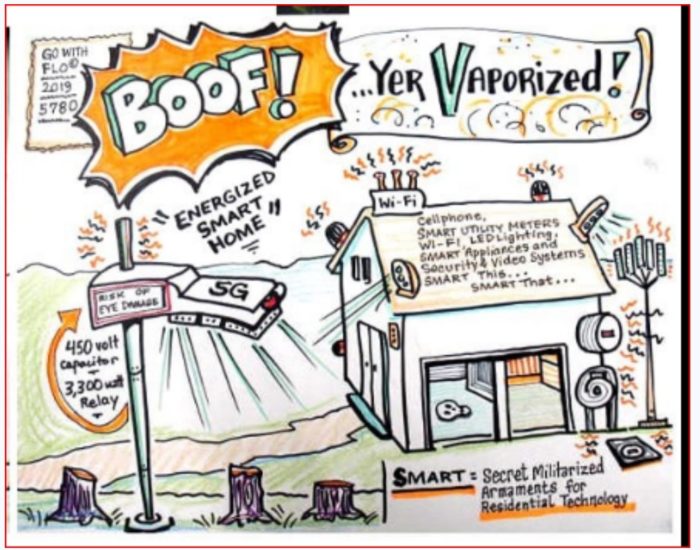 GO WITH
FLO©
2019
5780
BOOF!
...YER VAPORIZED!
"ENERGIZED
SMART
HOME"
Wi-Fi
Cellphone,
SMART UTILITY METERS
WI-FI, LED Lighting,
SMART Appliances and
Security & Video Systems
SMART This...
SMART That...
5G
RISK OF
EYE DAMAGE
450 volt
capacitor
3,300 watt
Relay
SMART = Secret Militarized
Armaments for
Residential Technology